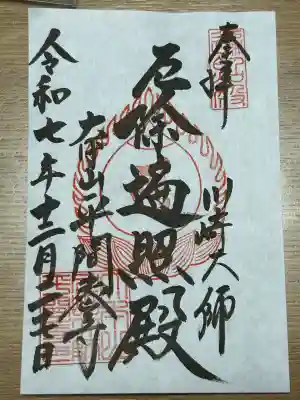 奉拝
川崎大師
厄除遍照殿
大本山平間教寺
令和七年十二月二七日